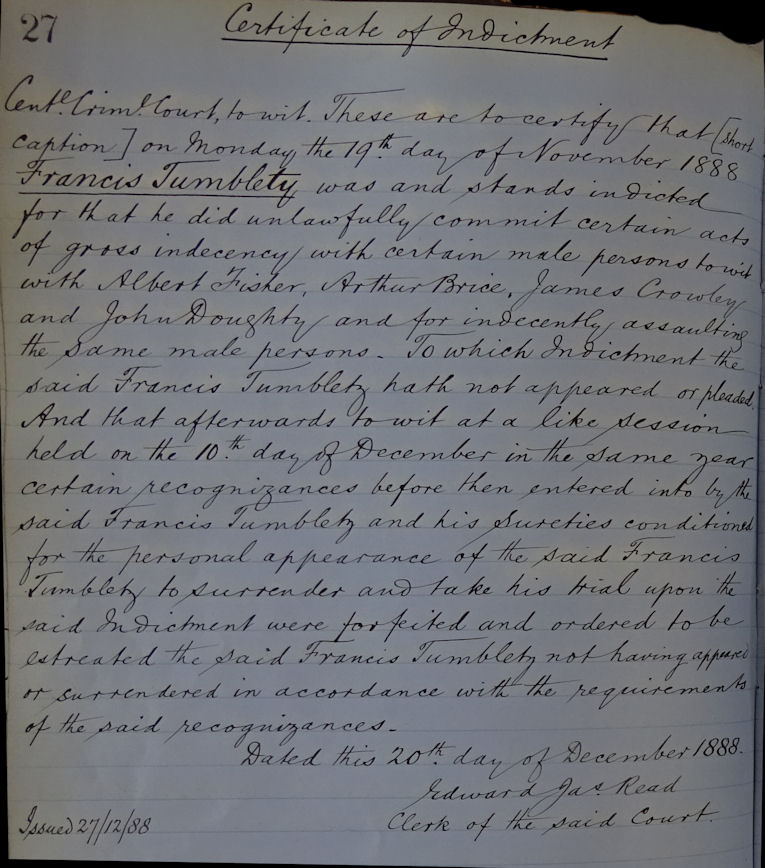 27
Certificate of Indictment
Cent.l Crim.l Court, to wit. These are to certify that [short
caption] on Monday the 19th day of November 1888
Francis Tumblety was and stands indicted
for that he did unlawfully commit certain acts
of gross indecency with certain male persons to wit
with Albert Fisher, Arthur Brice, James Crowley
and John Doughty and for indecently assaulting
the same male persons - To which Indictment the
said Francis Tumblety hath not appeared or pleaded.
And that afterwards to wit at a like session
held on the 10.th day of December in the same year
certain recognizances before then entered into by the
said Francis Tumblety and his Sureties conditioned
for the personal appearance of the said Francis
Tumblety to surrender and take his trial upon the
said Indictment were forfeited and ordered to be
estreated the said Francis Tumblety not having appeared
or surrendered in accordance with the requirements
of the said recognizances -
Dated this 20th day of December 1888.
Edward Jas Read
Clerk of the said Court.
Issued 27/12/88